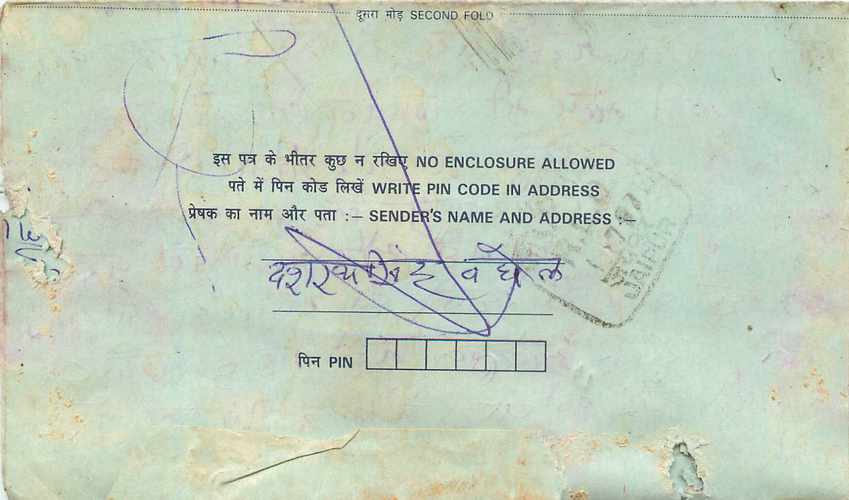 दूसरा मोड़ SECOND FOLD
इस पत्र के भीतर कुछ न रखिए NO ENCLOSURE ALLOWED
पते में पिन कोड लिखें WRITE PIN CODE IN ADDRESS
प्रेषक का नाम और पता :— SENDER'S NAME AND ADDRESS :—
दशरथसिंह बघेल
पिन PIN